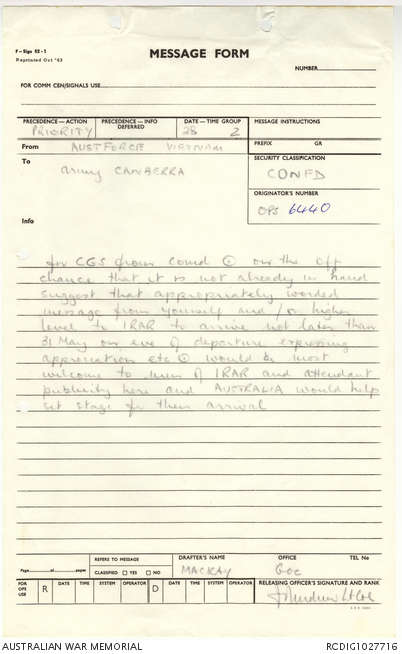 F–Sigs 52-1
Reprinted Oct '63
MESSAGE FORM
NUMBER
FOR COMM CEN/SIGNALS USE
PRECEDENCE — ACTION
PRIORITY
PRECEDENCE — INFO
DEFERRED
DATE — TIME GROUP
28 Z
MESSAGE INSTRUCTIONS
PREFIX GR
From AUSTFORCE VIETNAM
To Army CANBERRA
SECURITY CLASSIFICATION
CONFD
ORIGINATOR'S NUMBER
OPS 6440
Info
for CGS from Comd on the off
chance that it is not already in hand
suggest that appropriately worded
message from yourself and/or higher
level to 1RAR to arrive not later than
31 May on eve of departure expressing
appreciation etc would be most
welcome to men of 1RAR and attendant
publicity here and AUSTRALIA would help
set stage for their arrival
Page of pages
REFERS TO MESSAGE
CLASSIFIED YES NO
DRAFTER'S NAME
MACKAY
OFFICE
GOC
TEL No
FOR OPS USE
R DATE TIME SYSTEM OPERATOR D DATE TIME SYSTEM OPERATOR
RELEASING OFFICER'S SIGNATURE AND RANK
Lt Col
AUSTRALIAN WAR MEMORIAL
RCDIG1027716